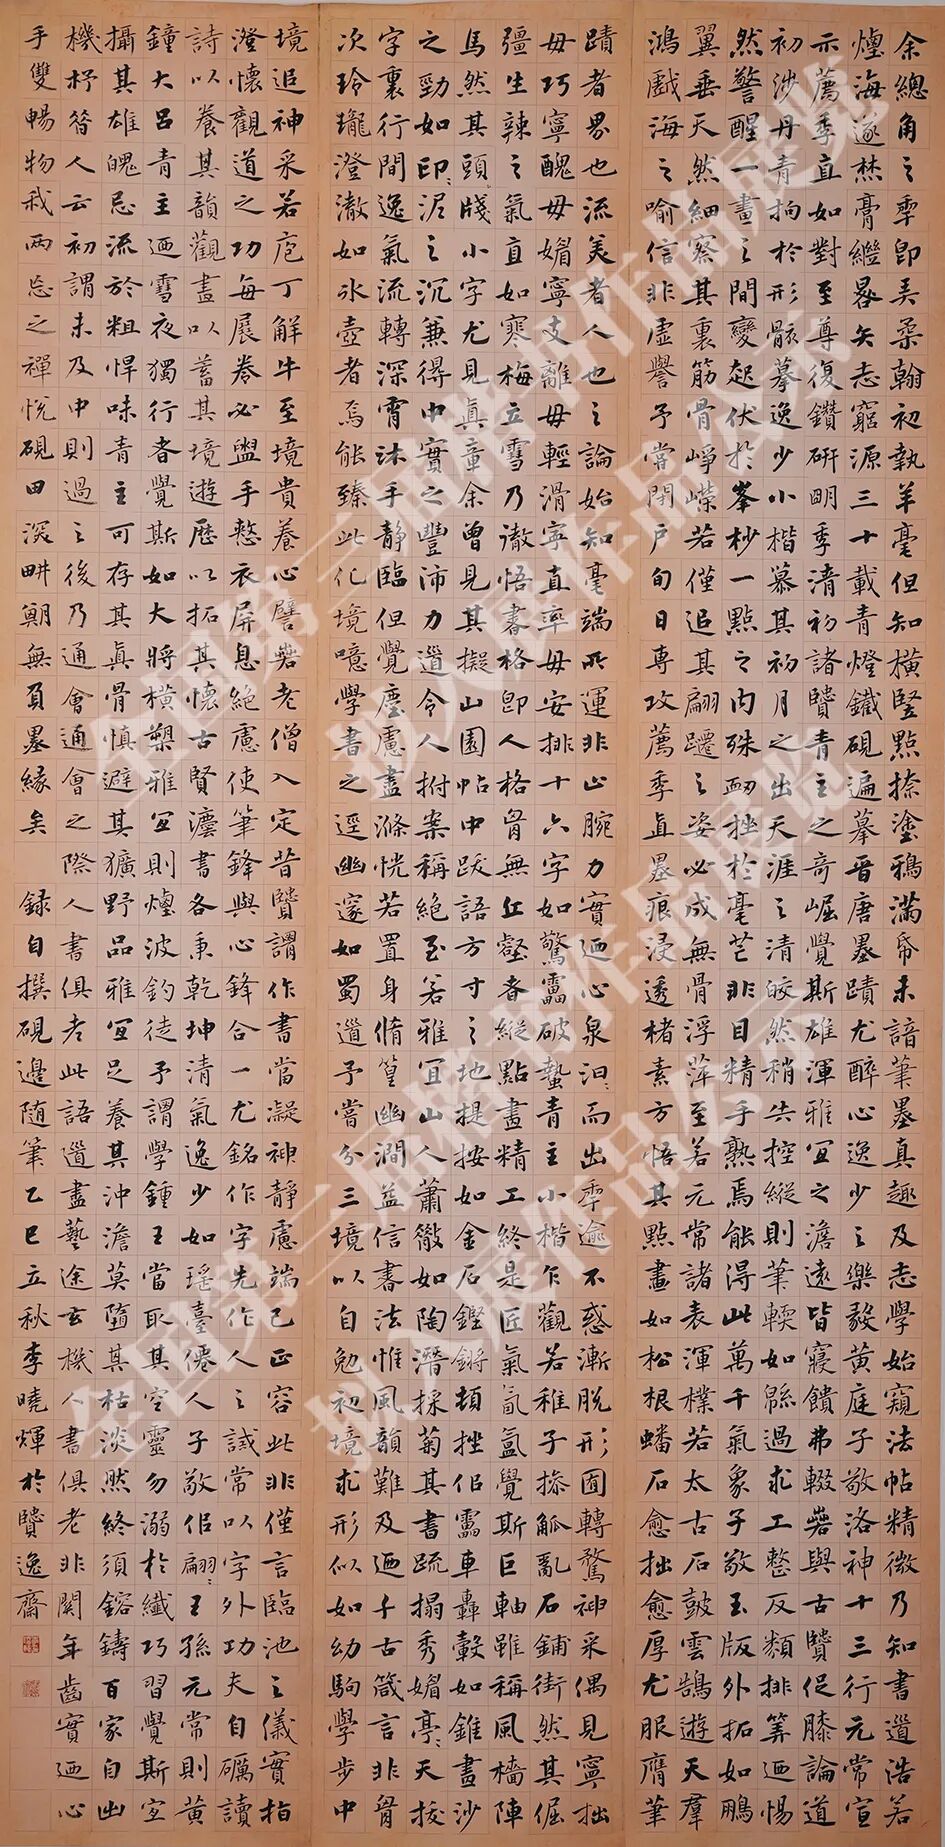 余總角之年即弄柔翰初執羊毫但知橫豎點捺塗鴉滿帋未諳筆墨真趣及志學始窺法帖精微乃知書道浩若
煙海遂焚膏繼晷矢志窮源三十載青燈鐵硯遍摹晉唐墨蹟尤醉心逸少之樂毅黃庭子敬洛神十三行元常宣
示薦季直如對至尊復鑽研明季清初諸賢青主之奇崛覺斯雄渾雅宜之澹遠皆寢饋弗輟嘗與古賢促膝論道
初涉丹青拘於形骸摹逸少小楷慕其初月之出天涯之清皎然稍失控縱則筆輭如緜過求工整反類排筭迺惕
然警醒一畫之間變起伏於峯杪一點之內殊衂挫於毫芒非目精手熟焉能得此萬千氣象子敬玉版外拓如鵬
翼垂天然細察其裏筋骨崢嶸若僅追其翩躚之姿必成無骨浮萍至若元常諸表渾樸若太古石鼓雲鵠遊天羣
鴻戲海之喻信非虛譽予嘗閉戶旬日專攻薦季直墨痕浸透楮素方悟其點畫如松根蟠石愈拙愈厚尤服膺筆
蹟者界也流美者人也之論始知毫端所運非止腕力實迺心泉汩〻而出年逾不惑漸脫形囿轉騖神采偶見寧拙
毋巧寧醜毋媚寧支離毋輕滑寧直率毋安排十六字如驚靁破蟄青主小楷乍觀若稚子摻觚亂石鋪街然其倔
彊生辣之氣直如寒梅立雪乃澈悟書格即人格胷無丘壑者縱點畫精工終是匠氣氤氳覺斯巨軸雖稱風檣陣
馬然其頭牋小字尤見真章余曾見其擬山園帖中跋語方寸之地提按如金石鏗鏘頓挫佀靁車轟轂如錐畫沙
之勁如印〻泥之沉兼得中實之豐沛力遒令人拊案稱絕至若雅宜山人蕭散如陶潛採菊其書疏搨秀媚亭〻天授
字裏行間逸氣流轉深霄沐手靜臨但覺塵慮盡滌恍若置身脩篁幽澗益信書法惟風韻難及迺千古箴言非胷
次玲瓏澄澈如冰壺者焉能臻此化境噫學書之逕幽邃如蜀道予嘗分三境以自勉初境求形似如幼駒學步中
境追神采若庖丁解牛至境貴養心譬若老僧入定昔賢謂作書當凝神靜慮端己正容此非僅言臨池之儀實指
澄懷觀道之功每展卷必盥手整衣屏息絕慮使筆鋒與心鋒合一尤銘作字先作人之誡常以字外功夫自礪讀
詩以養其韻觀畫以蓄其境遊歷以拓其懷古賢灋書各秉乾坤清氣逸少如瑤臺僊人子敬佀翩〻王孫元常則黃
鐘大呂青主迺雪夜獨行者覺斯如大將橫槊雅宜則煙波釣徒予謂學鍾王當取其空靈勿溺於纖巧習覺斯宜
攝其雄魄忌流於粗悍味青主可存其真骨慎避其獷野品雅宜足養其沖澹莫墮其枯淡然終須鎔鑄百家自出
機杼昝人云初謂未及中則過之後乃通會通會之際人書俱老此語道盡藝途玄機人書俱老非關年齒實迺心
手雙暢物我兩忘之禪悅硯田深畊朝無負墨緣矣 錄自撰硯邊隨筆乙巳立秋李曉輝於賢逸齋
全国第三届楷书作品展览
拟入展作品公示
全国第三届楷书作品展览
拟入展作品公示